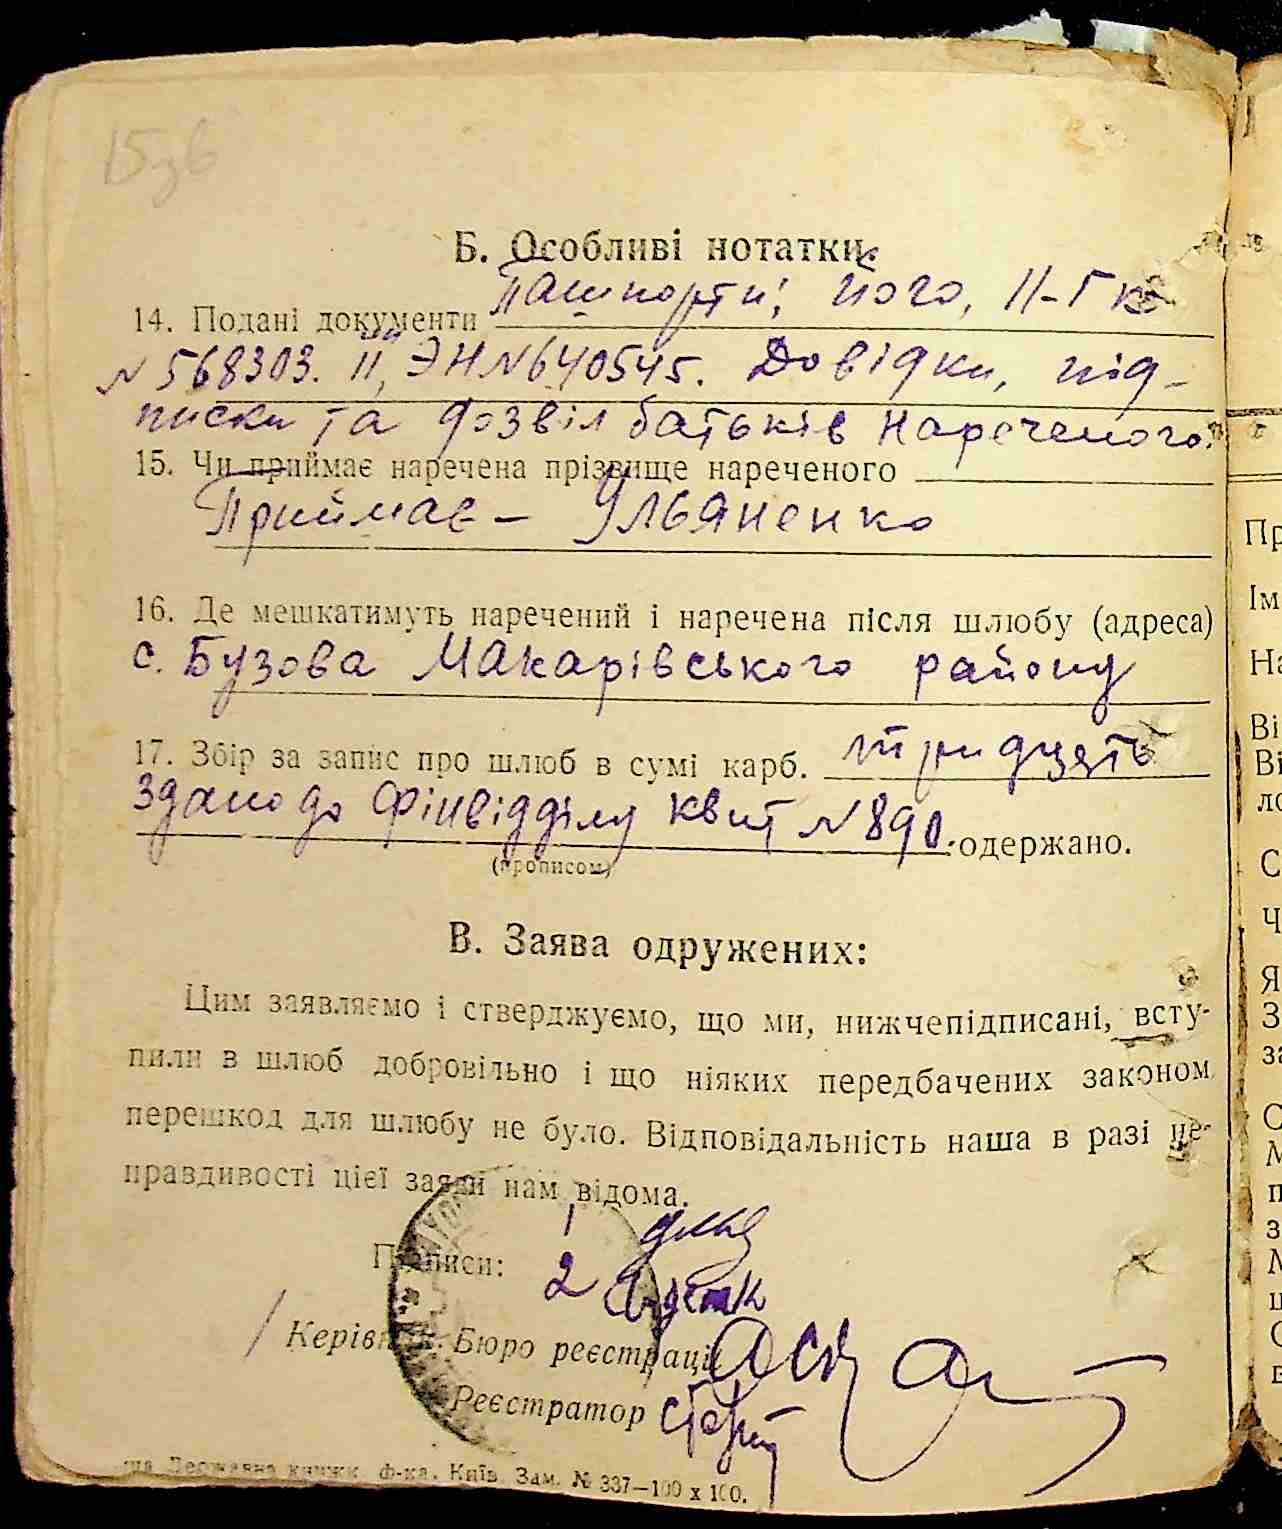 Б. Особливі нотатки.
14. Подані документи Пашпорти: Його, II-Гк
N 568303. Її, ЭН N 640545. Довідки, під-
писки та дозвіл батьків Нареченого.
15. Чи приймає наречена прізвище нареченого
Приймає – Ульяненко
16. Де мешкатимуть наречений і наречена після шлюбу (адреса)
с. Бузова Макарівського району
17. Збір за запис про шлюб в сумі карб. тридцять
здано до Фінвідділу квит N 890. одержано.
(прописом)
В. Заява одружених:
Цим заявляємо і стверджуємо, що ми, нижчепідписані, всту-
пили в шлюб добровільно і що ніяких передбачених законом
перешкод для шлюбу не було. Відповідальність наша в разі не-
правдивості цієї заяви нам відома.
1
Підписи:
2
Керівник Бюро реєстрації
Реєстратор
Державна книжк. ф-ка. Київ. Зам. № 337—100 х 100.
Пр
Ім
На
Ві
Ві
ло
С
Ч
Я
З
за
С
М
п
з
М
ц
С
в